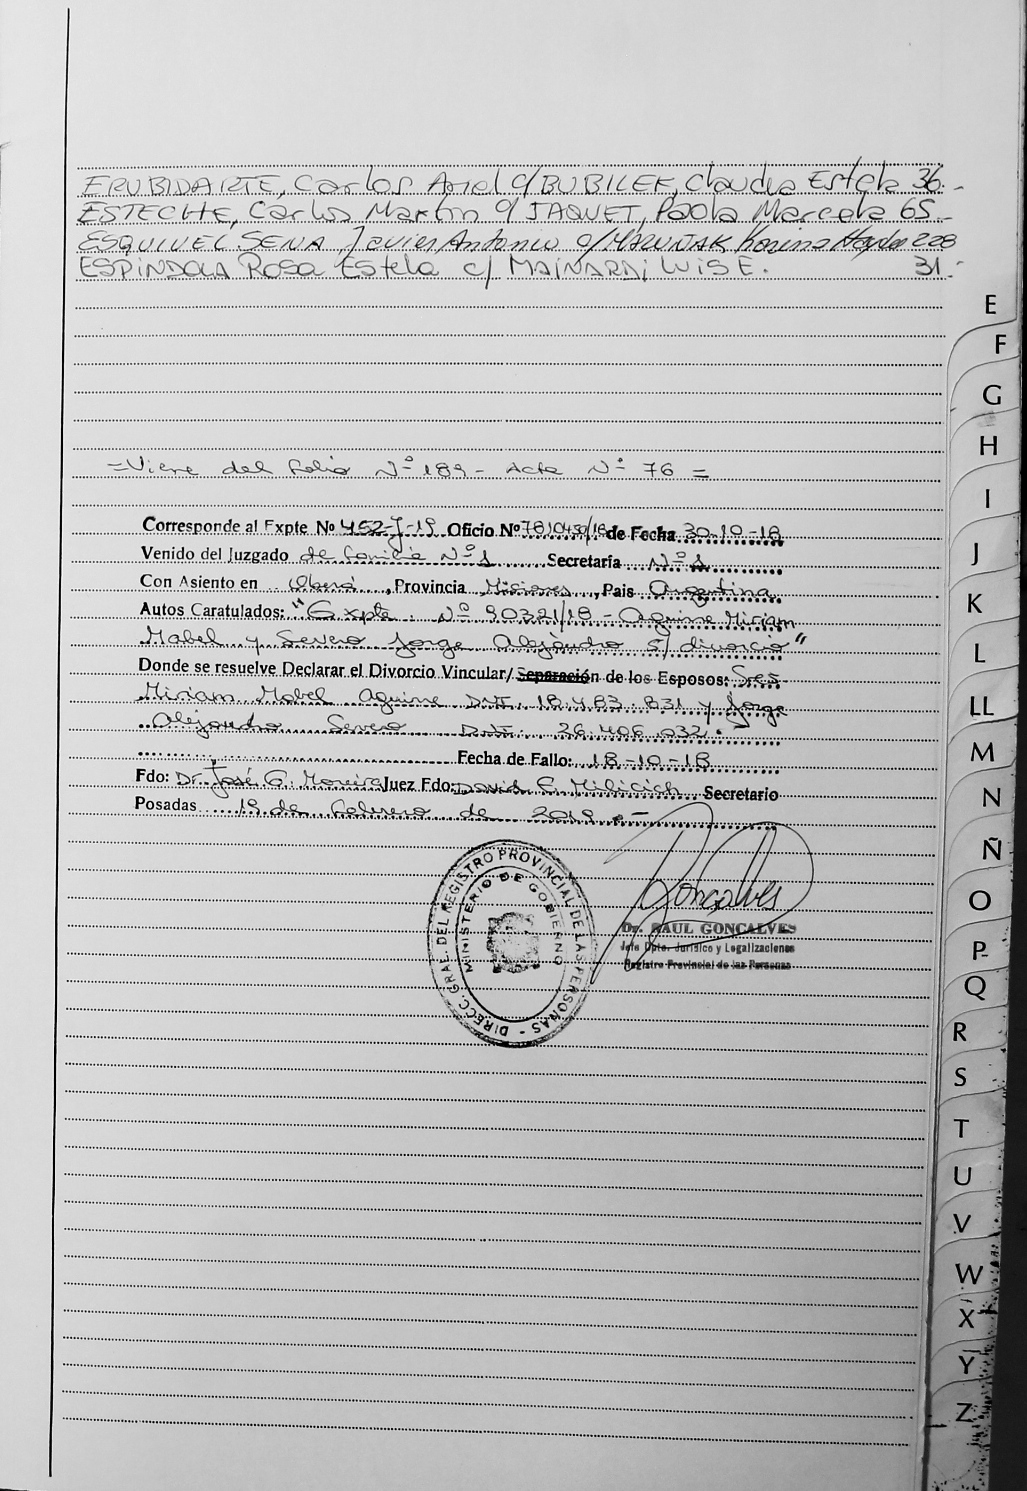 ERUBIDARTE, Carlos Ariel c/ BUBILEK, Claudia Estela 36.-
ESTECHE, Carlos Martin c/ JAQUET, Paola Marcela 65.-
ESQUIVEL SENA Javier Antonio c/ MAZUNAK Karina Haydee 228
ESPINDOLA Rosa Estela c/ MAINARDI LUIS E. 31.-
E
F
G
H
I
J
K
L
LL
M
N
Ñ
O
P
Q
R
S
T
U
V
W
X
Y
Z
= Viene del folio Nº 189 - Acta Nº 76 =
Corresponde al Expte Nº 452-J-19 Oficio Nº de Fecha 30-10-18
Venido del Juzgado de Familia Nº 1 Secretaría Nº 1
Con Asiento en Oberá, Provincia Misiones, Pais Argentina
Autos Caratulados: "Expte. Nº 90321/18 - Aguirre Miriam
Mabel y Severo Jorge Alejandro s/ divorcio"
Donde se resuelve Declarar el Divorcio Vincular/ Separación de los Esposos: Sres.
Miriam Mabel Aguirre DNI. 18.483.831 y Jorge
Alejandro Severo DNI. 26.406.032.
Fecha de Fallo: 18-10-18
Fdo: Dr. José G. Moreira Juez Fdo: David E. Milicich Secretario
Posadas 19 de febrero de 2019.-
DIRECC. GRAL. DEL REGISTRO PROVINCIAL DE LAS PERSONAS
MINISTERIO DE GOBIERNO
Goncalves
Dr. RAUL GONCALVES
Jefe Dpto. Jurísico y Legalizaciones
Registro Provincial de las Personas